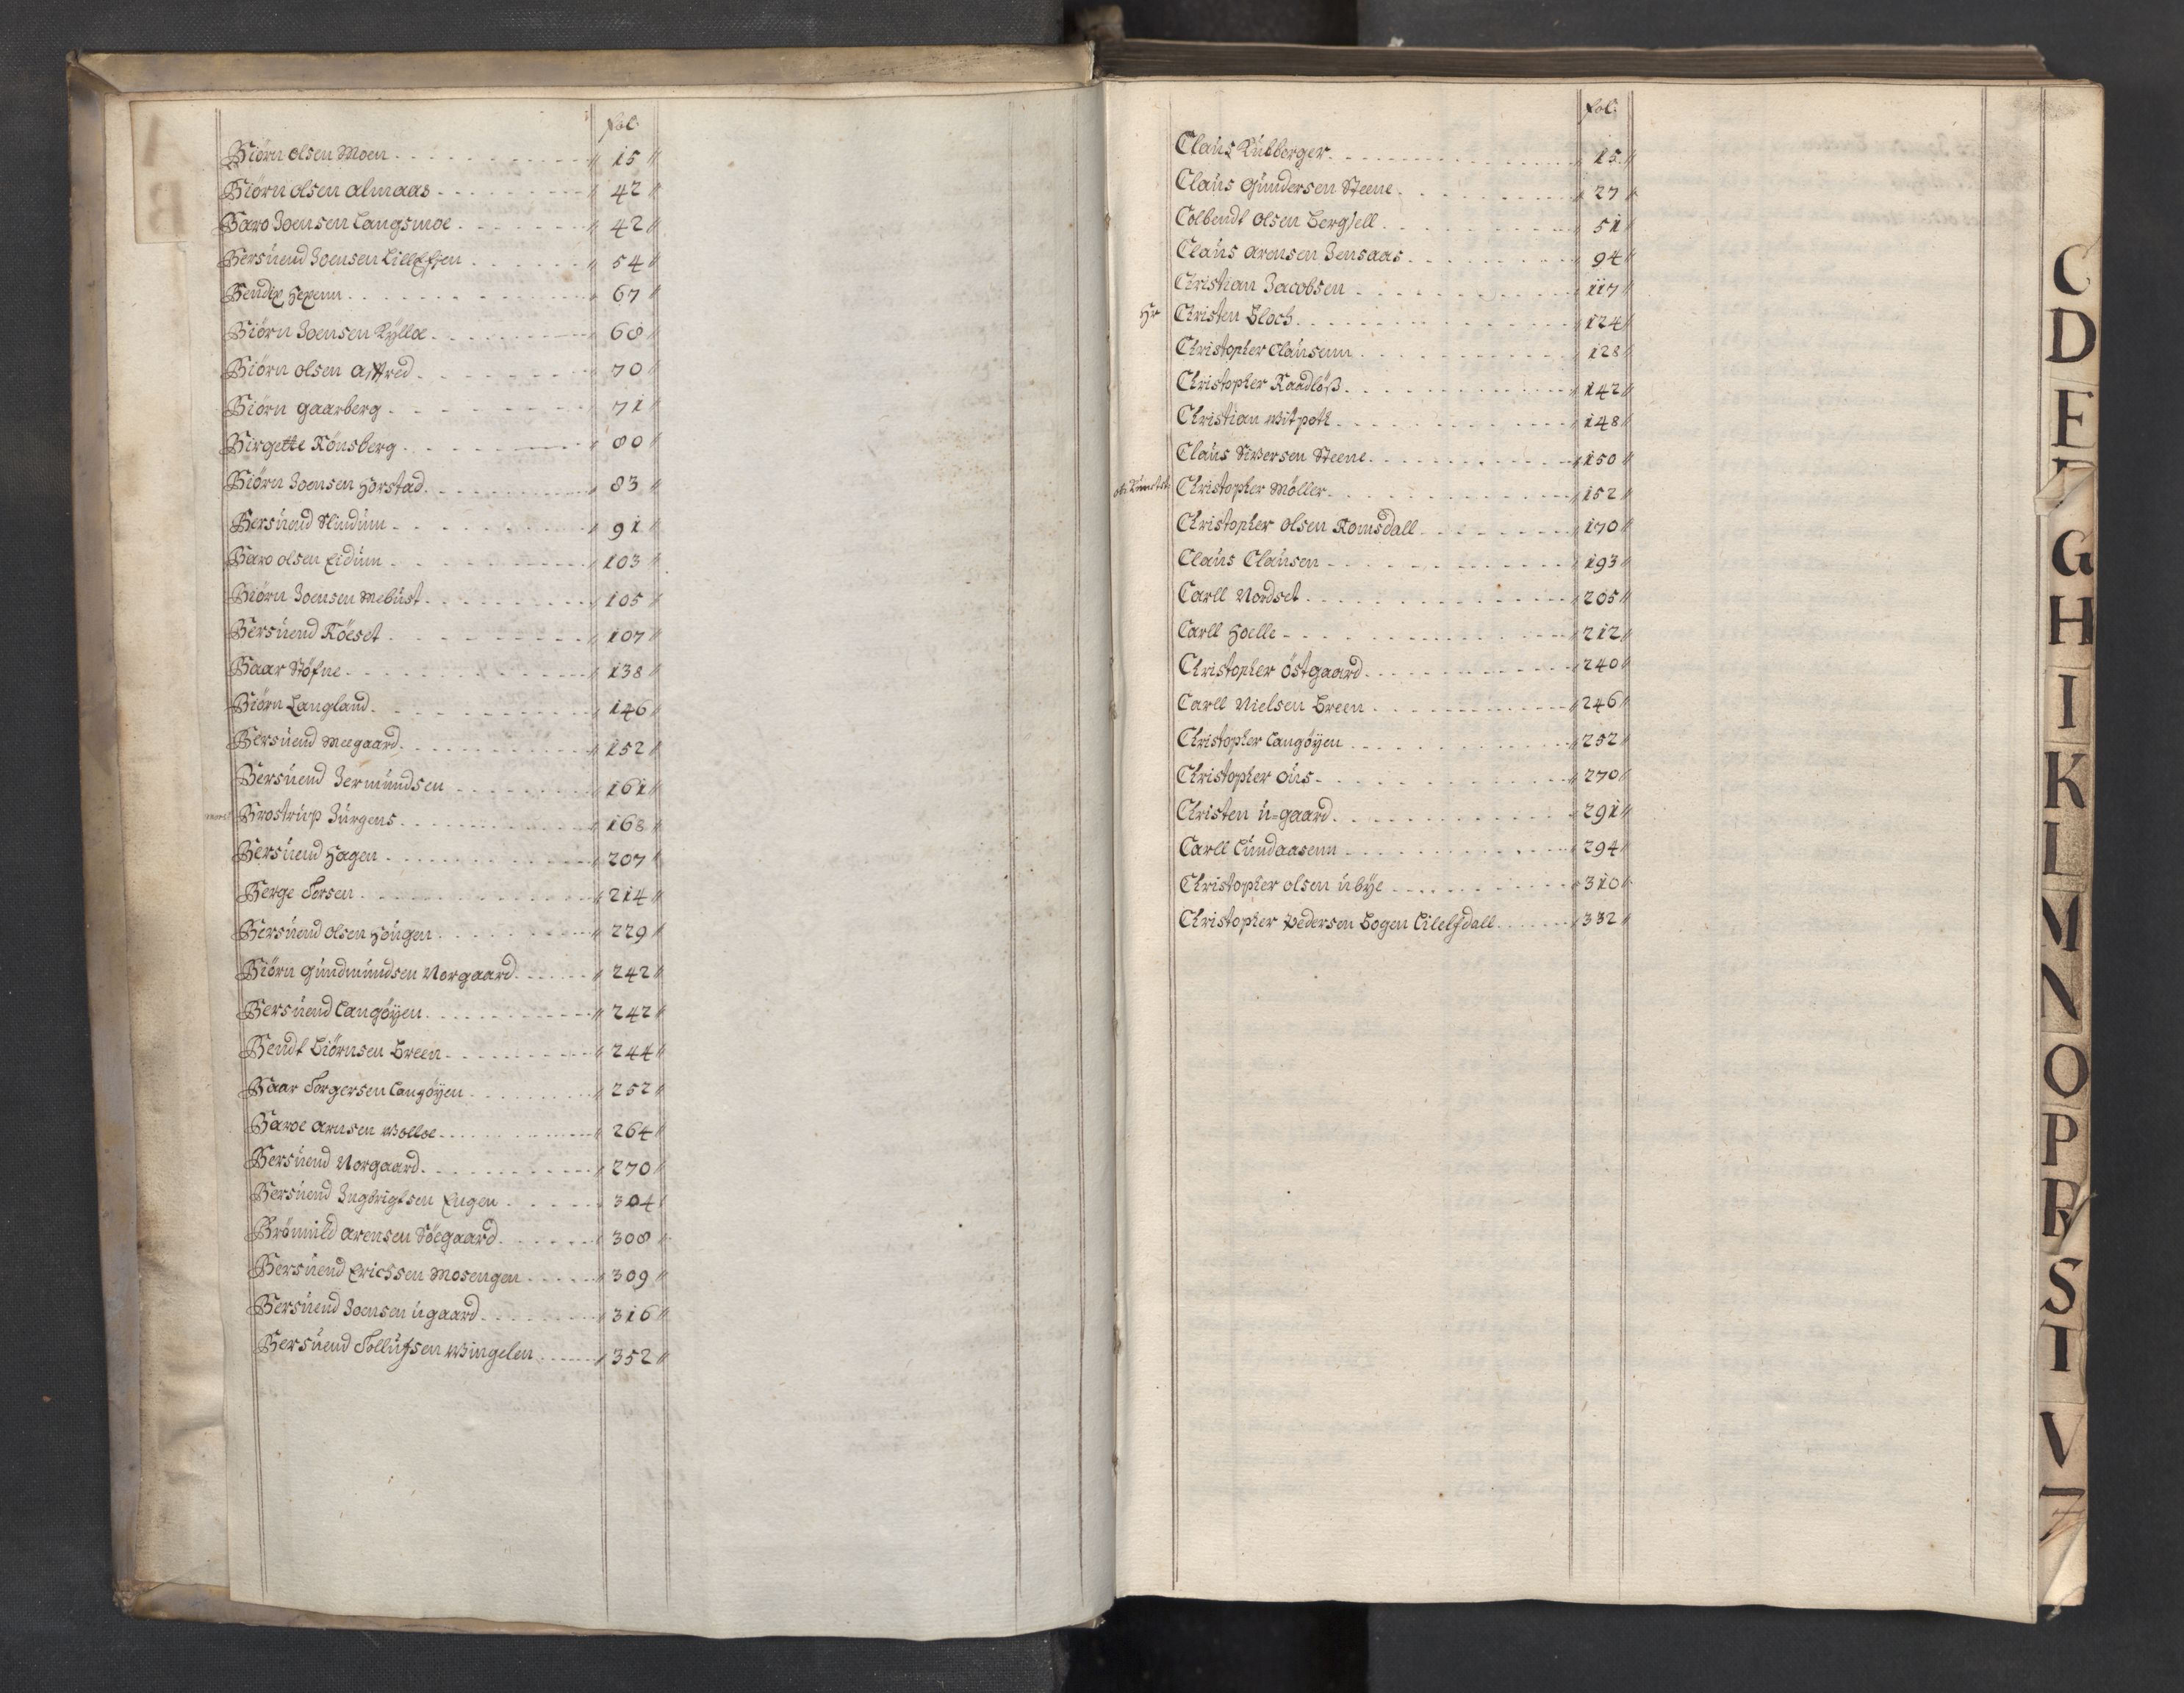 fol:
Biörn olsen Moen 15
Biörn olsen almaas 42
Baro Joensen Langsmoe 42
Bersúend Joensen 54
Bendix 67
Biörn Joensen Kÿlloe 68
Biörn olsen 70
Biörn gaarberg 71
Birgette Rönsberg 80
Biörn Joensen Horstad 83
Bersúend Slindúm 91
Baro olsen Eidúm 103
Biörn Joensen Mebúst 105
Bersúend Röeset 107
Baar Stöfne 138
Biörn Langland 146
Bersúend Meegaard 152
Bersúend Jermúndsen 161
Brostrúp Júrgens 168
Bersúend Hagen 207
Berge Torsen 214
Bersúend olsen Hoúgen 229
Biörn gúndmúndsen Norgaard 242
Bersúend Langöÿen 242
Bendt Biörnsen Breen 244
Baar Torgersen Langöÿen 252
Baroe arnsen Wolloe 264
Bersúend Norgaard 270
Bersúend Ingbrigtsen Engen 304
Brömúld arensen Söegaard 308
Bersúend Ericksen Mosengen 309
Bersúend Joensen úgaard 316
Bersúend Tollúfsen Wingelen 352
fol:
Claús Kúhborger 15
Claús gúndersen Steene 27
Colbendt olsen Bergsell 51
Claús arensen Jensaas 94
Christian Jacobsen 117
Hr Christen Bloch 124
Christopher Claúsenn 128
Christopher Raadlöß 142
Christian Witpoth 148
Claús Siversen Steene 150
Christopher Möller 152
Christopher olsen Romsdall 170
Claús Claúsen 193
Carll Nordset 205
Carll Hoelle 212
Christopher östgaard 240
Carll Nielsen Breen 246
Christopher Langöÿen 252
Christopher oús 270
Christen ú=gaard 291
Carll Lúndaasenn 294
Christopher olsen úbÿe 310
Christopher Pedersen Bogen Lilelfdall 332
C
D
E
G
H
I
K
L
M
N
O
P
R
S
T
V